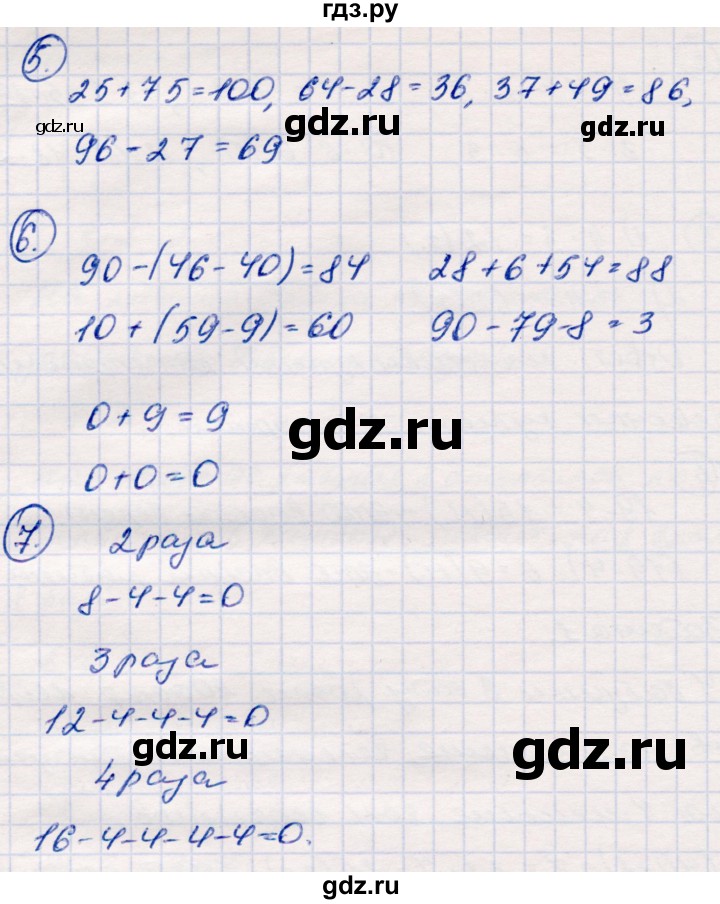 гдз.ру
5.
25+75=100, 64-28=36, 37+49=86,
gdz.ru gdz.ru gdz.ru
96-27=69
6.
90-(46-40)=84 28+6+54=88
10+(59-9)=60 90-79-8=3
0+9=9
gdz.ru
0+0=0
7.
2 раза
8-4-4=0
3 раза
12-4-4-4=0
gdz.ru gdz.ru
4 раза
16-4-4-4-4=0.
gdz.ru